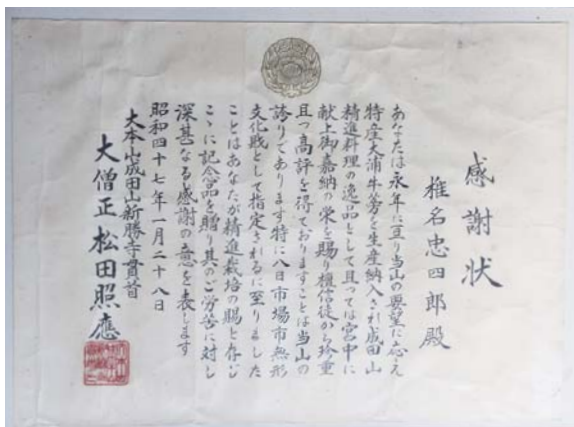 感謝状
椎名忠四郎殿
あなたは永年に亘り当山の要望に応え
特産大浦牛蒡を生産納入され成田山
精進料理の逸品として且っては宮中に
献上御嘉納の栄を賜り檀信徒から珍重
且つ高評を得ておりますことは当山の
誇りであります特に八日市場市無形
文化財として指定されるに至りました
ことはあなたが精進栽培の賜と存じ
こゝに記念品を贈り其のご労苦に対し
深甚なる感謝の意を表します
昭和四十七年一月二十八日
大本山成田山新勝寺貫首
大僧正松田照應